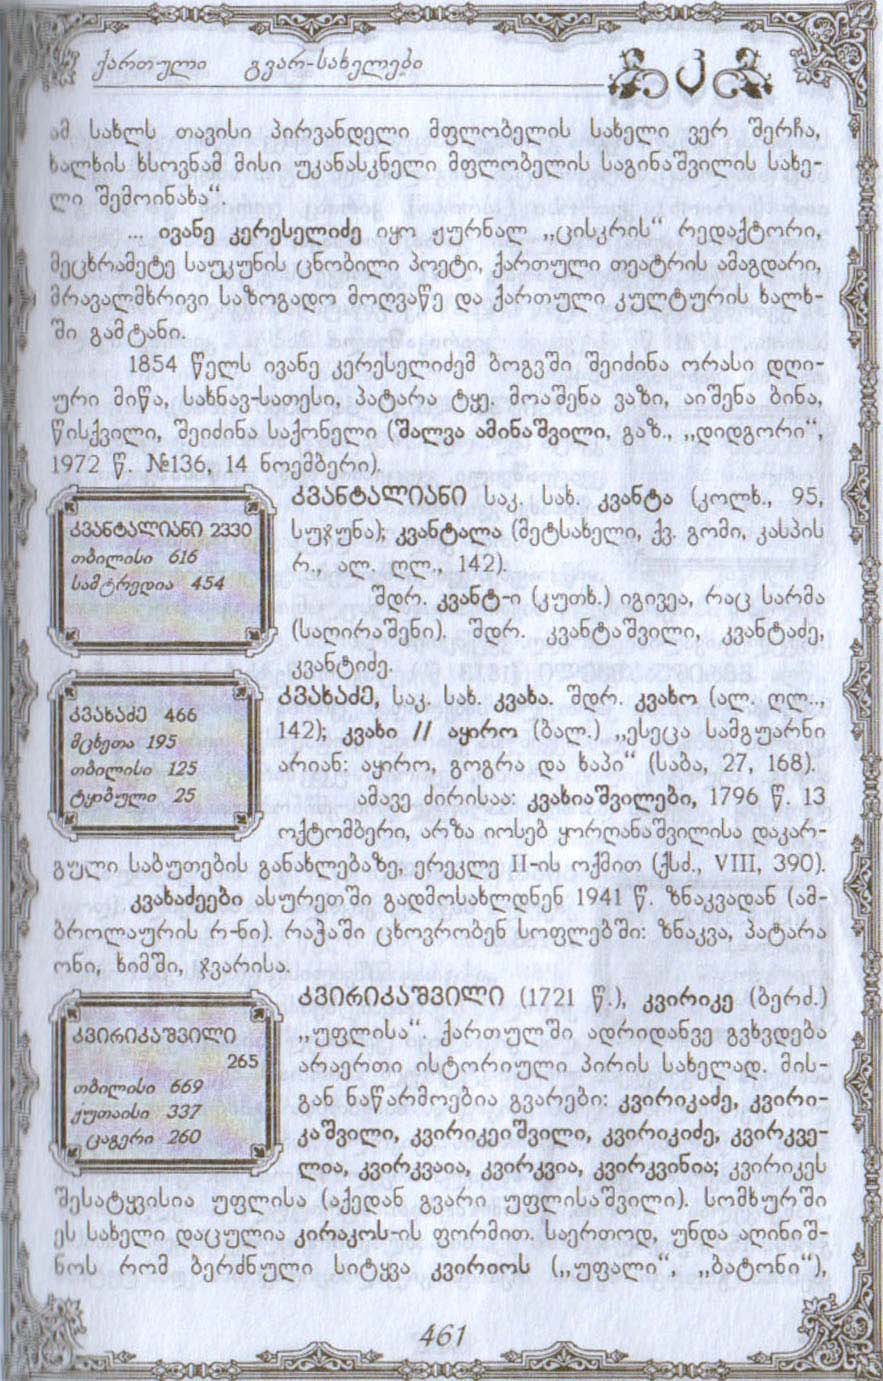 ქართული გვარ-სახელები
კ
ამ სახლს თავისი პირვანდელი მფლობელის სახელი ვერ შერჩა,
ხალხის ხსოვნამ მისი უკანასკნელი მფლობელის საგინაშვილის სახე-
ლი შემოინახა“.
... ივანე კერესელიძე იყო ჟურნალ „ცისკრის“ რედაქტორი,
მეცხრამეტე საუკუნის ცნობილი პოეტი, ქართული თეატრის ამაგდარი,
მრავალმხრივი საზოგადო მოღვაწე და ქართული კულტურის ხალხ-
ში გამტანი.
1854 წელს ივანე კერესელიძემ ბოგვში შეიძინა ორასი დღი-
ური მიწა, სახნავ-სათესი, პატარა ტყე, მოაშენა ვაზი, აიშენა ბინა,
წისქვილი, შეიძინა საქონელი (შალვა ამინაშვილი, გაზ., „დიდგორი“,
1972 წ. №136, 14 ნოემბერი).
კვანტალიანი 2330
თბილისი 616
სამტრედია 454
კვანტალიანი საკ. სახ. კვანტა (კოლხ., 95,
სუჯუნა); კვანტალა (მეტსახელი, ქვ. გომი, კასპის
რ., ალ. ღლ., 142).
შდრ. კვანტ-ი (კუთხ.) იგივეა, რაც სარმა
(საღირაშენი). შდრ. კვანტაშვილი, კვანტაძე,
კვანტიძე.
კვახაძე 466
მცხეთა 195
თბილისი 125
ტყიბული 25
კვახაძე, საკ. სახ. კვახა. შდრ. კვახო (ალ. ღლ.,
142); კვახი // აყირო (ბალ.) „ესეცა სამგუარნი
არიან: აყირო, გოგრა და ხაპი“ (საბა, 27, 168).
ამავე ძირისაა: კვახიაშვილები, 1796 წ. 13
ოქტომბერი, არზა იოსებ ყორღანაშვილისა დაკარ-
გული საბუთების განახლებაზე, ერეკლე II-ის ოქმით (ქსძ., VIII, 390).
კვახაძეები ასურეთში გადმოსახლდნენ 1941 წ. ზნაკვადან (ამ-
ბროლაურის რ-ნი). რაჭაში ცხოვრობენ სოფლებში: ზნაკვა, პატარა
ონი, ხიმში, ჯვარისა.
კვირიკაშვილი
265
თბილისი 669
ქუთაისი 337
ცაგერი 260
კვირიკაშვილი (1721 წ.), კვირიკე (ბერძ.)
„უფლისა“. ქართულში ადრიდანვე გვხვდება
არაერთი ისტორიული პირის სახელად. მის-
გან ნაწარმოებია გვარები: კვირიკაძე, კვირი-
კაშვილი, კვირიკეიშვილი, კვირიკიძე, კვირკვე-
ლია, კვირკვაია, კვირკვია, კვირკვინია; კვირიკეს
შესატყვისია უფლისა (აქედან გვარი უფლისაშვილი). სომხურში
ეს სახელი დაცულია კირაკოს-ის ფორმით. საერთოდ, უნდა აღინიშ-
ნოს რომ ბერძნული სიტყვა კვირიოს („უფალი“, „ბატონი“),
461